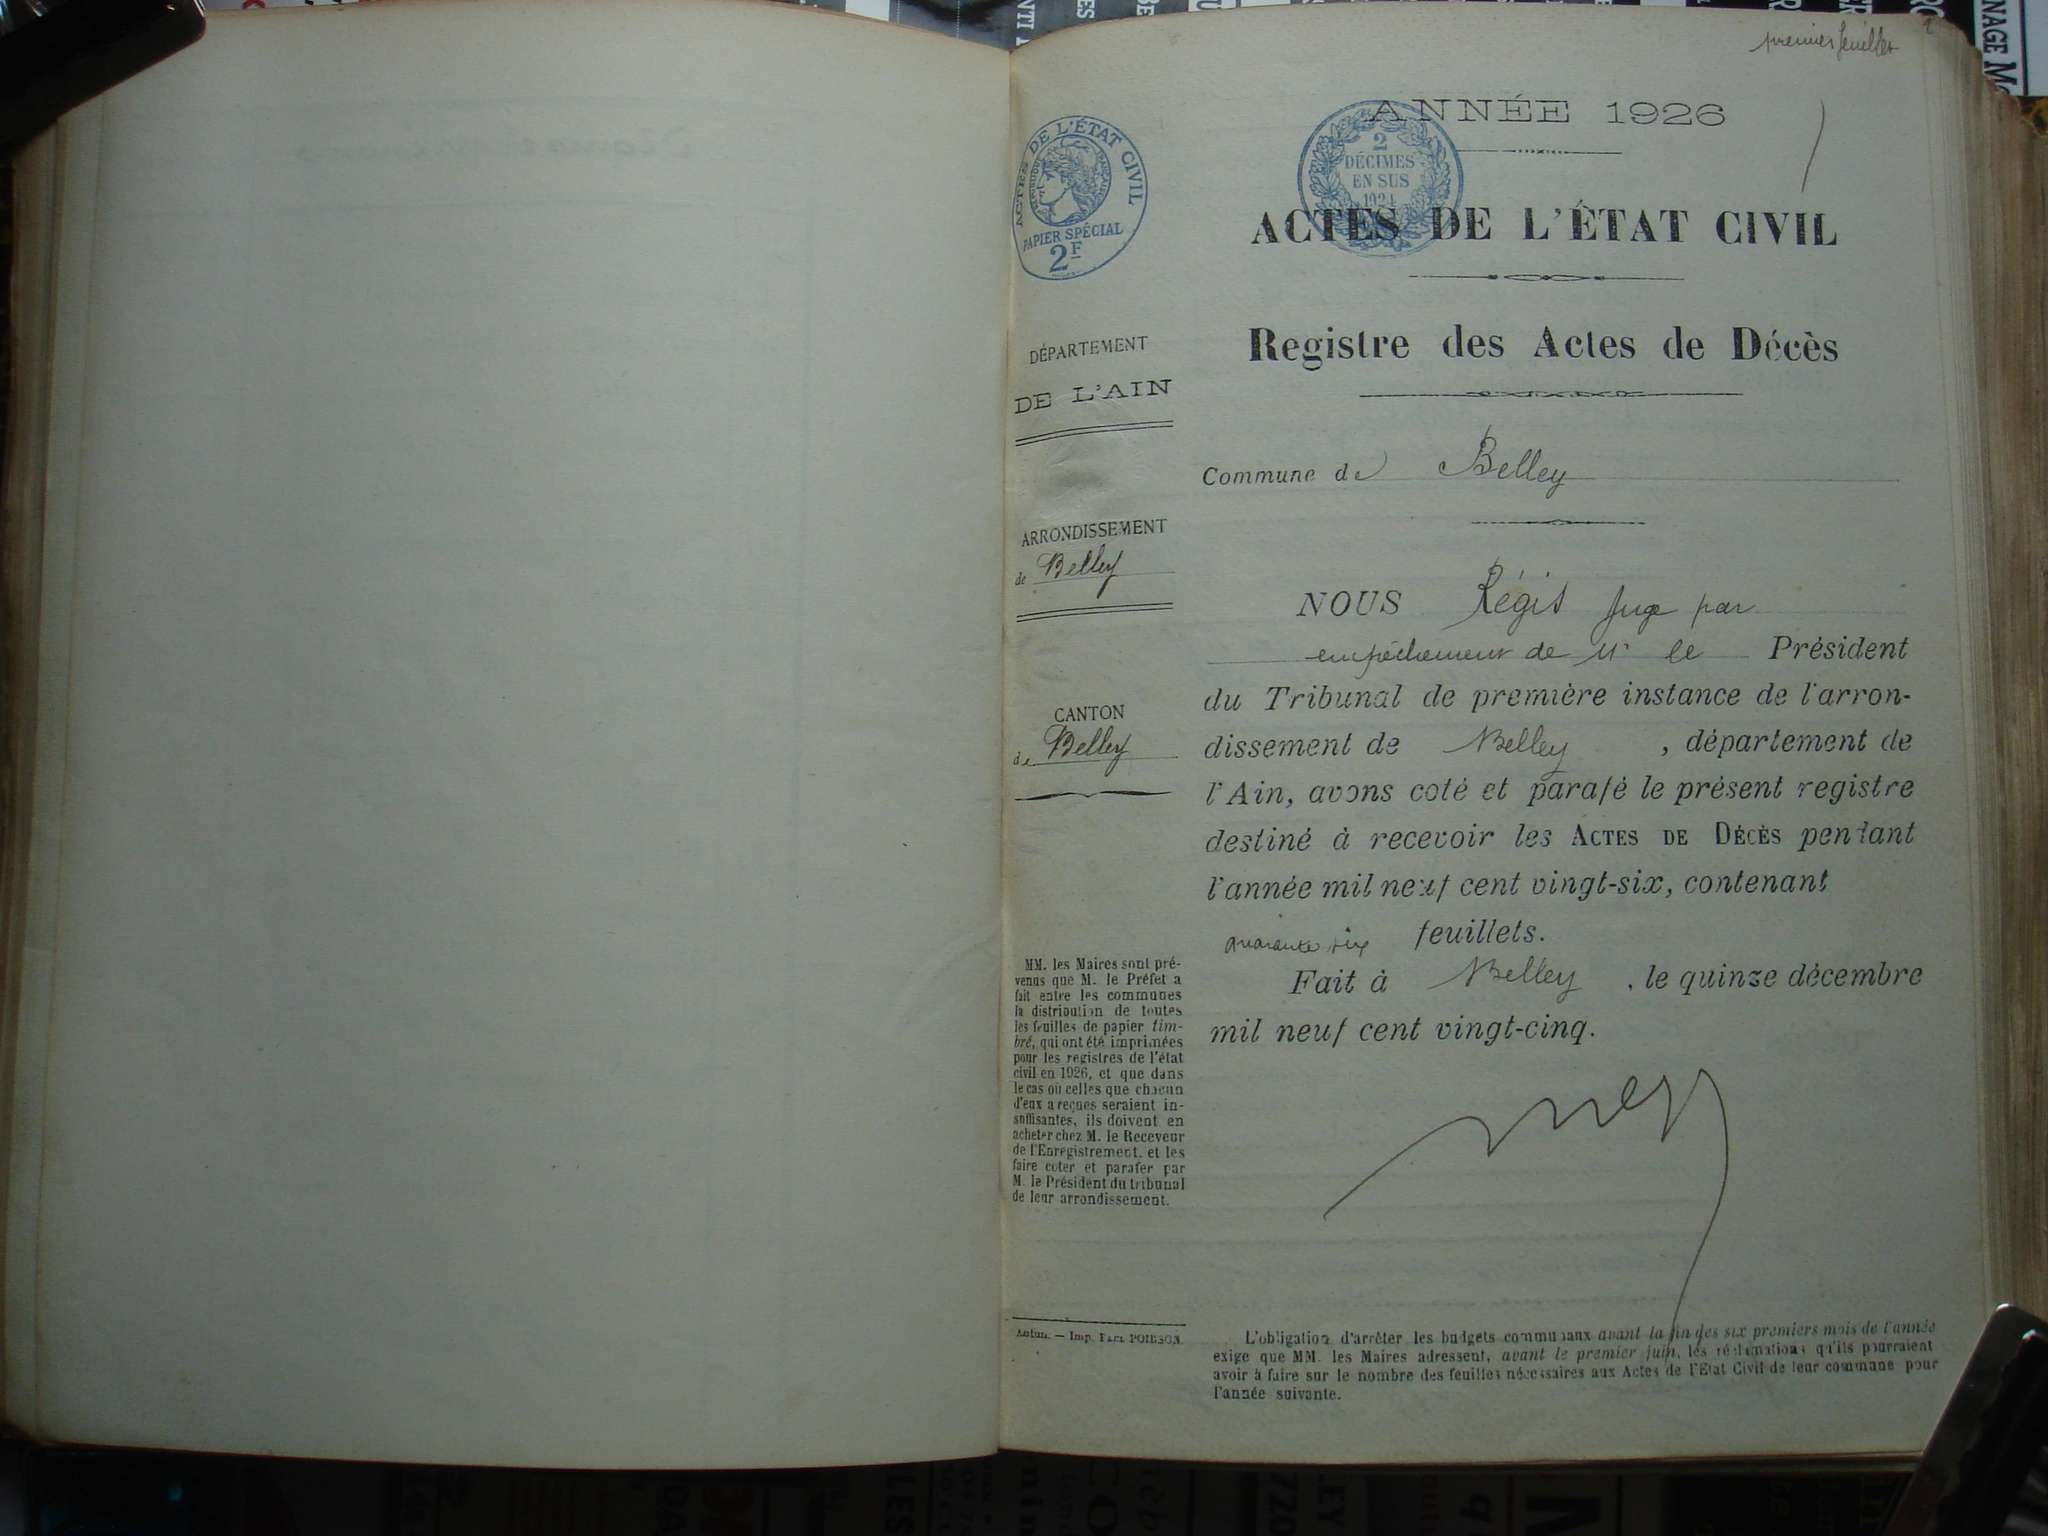 premier feuillet
ANNÉE 1926
ACTES DE L'ÉTAT CIVIL
RÉPUBLIQUE FRANÇAISE
PAPIER SPÉCIAL
2F
2
DÉCIMES
EN SUS
1924
ACTES DE L'ÉTAT CIVIL
Registre des Actes de Décès
DÉPARTEMENT
DE L'AIN
ARRONDISSEMENT
de Belley
CANTON
de Belley
MM. les Maires sont pré-
venus que M. le Préfet a
fait entre les communes
la distribution de toutes
les feuilles de papier tim-
bré, qui ont été imprimées
pour les registres de l'état
civil en 1926, et que dans
le cas où celles que chacun
d'eux a reçues seraient in-
suffisantes, ils doivent en
acheter chez M. le Receveur
de l'Enregistrement, et les
faire coter et parafer par
M. le Président du tribunal
de leur arrondissement.
Imp. PAUL
Commune de Belley
NOUS Régis Juge par
empêchement de Mr le Président
du Tribunal de première instance de l'arron-
dissement de Belley, département de
l'Ain, avons coté et parafé le présent registre
destiné à recevoir les ACTES DE DÉCÈS pendant
l'année mil neuf cent vingt-six, contenant
quarante six feuillets.
Fait à Belley, le quinze décembre
mil neuf cent vingt-cinq.
L'obligation d'arrêter les budgets communaux avant la fin des six premiers mois de l'année
exige que MM. les Maires adressent, avant le premier juin, les réclamations qu'ils pourraient
avoir à faire sur le nombre des feuilles nécessaires aux Actes de l'Etat Civil de leur commune pour
l'année suivante.